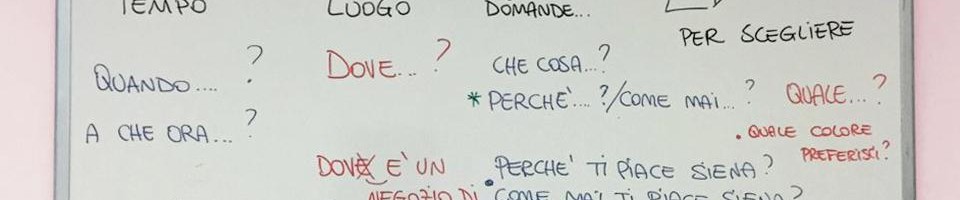 TEMPO
LUOGO
DOMANDE...
PER SCEGLIERE
QUANDO.... ?
DOVE... ?
CHE COSA...?
*PERCHE'....?/COME MAI...?
QUALE...?
A CHE ORA... ?
. QUALE COLORE
PREFERISCI?
DOVE E' UN
NEGOZIO DI
.PERCHE' TI PIACE SIENA?
COME MAI TI PIACE SIENA?